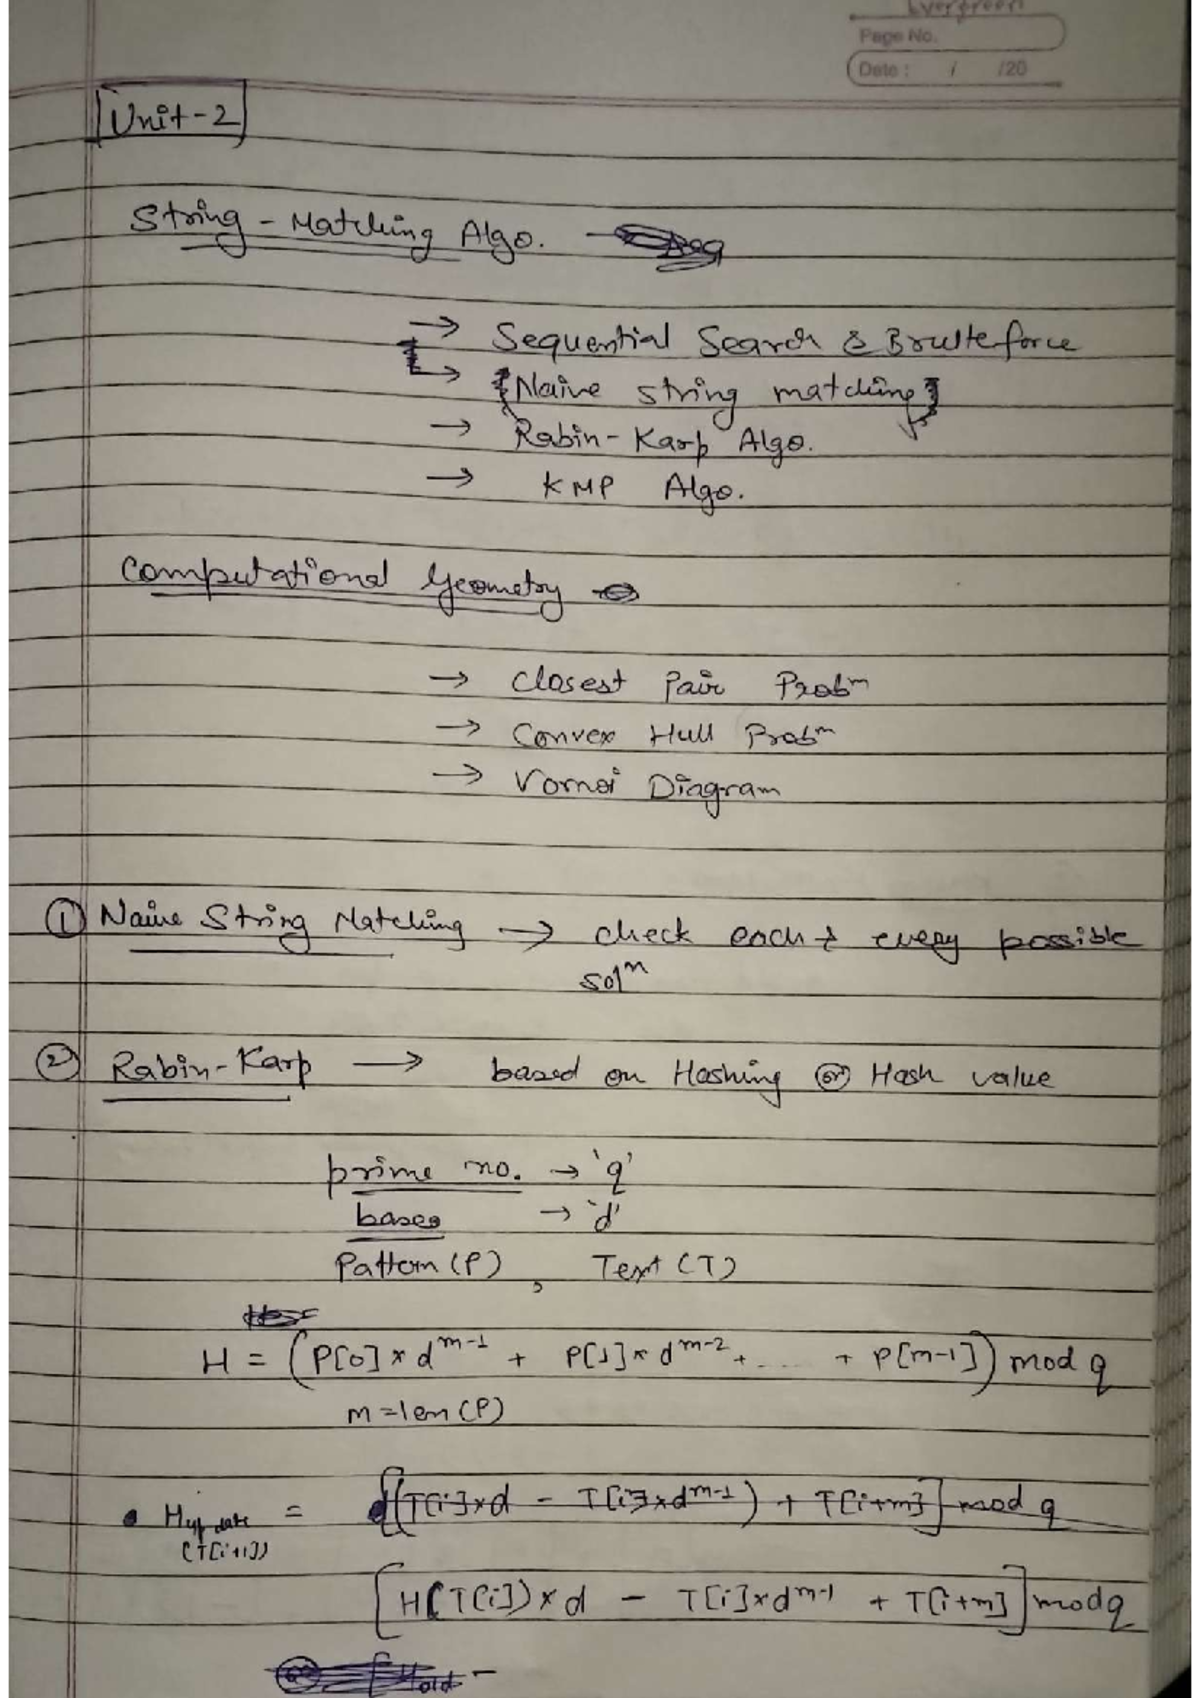 Evergreen
Page No.
Date : / /20
Unit-2
String - Matching Algo.
→ Sequential Search & Brute force
→ {Naive string matching}
→ Rabin-Karp Algo.
→ KMP Algo.
Computational Geometry
→ Closest Pair Probm
→ Convex Hull Probm
→ Vornoi Diagram
① Naive String Matching → check each & every possible
solm
② Rabin-Karp → based on Hashing or Hash value
prime no. → 'q'
bases → 'd'
Pattern (P) , Text (T)
H = (P[0] * d^m-1 + P[1] * d^m-2 + .... + P[m-1]) mod q
m = len(P)
• Hupdate = [(T[i]xd - T[i]xd^m-1) + T[i+m]] mod q
(T[i+1])
[H(T[i]) x d - T[i]xd^m-1 + T[i+m]] mod q